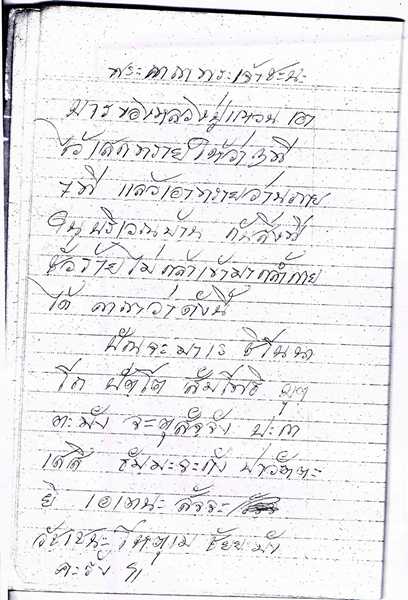 พระคาถาพระเจ้าชะนะ
มารของหลวงปู่แหวน เอา
ไว้เสกทราย ให้ว่า ๓ ที
๗ ที แล้วเอาทรายหว่านภาย
ในบริเวณบ้าน กันสิ่งที่
ชั่วร้ายไม่กล้าเข้ามากล้ำกาย
ได้ คาถาว่าดังนี้
ปัญจะมาเร ชิเนนา
โถ ปัตโต สัมโพธิ
ตะมัง จะตุสัจจัง ปะกา
เสติ ธัมมะจะกัง ปะวัตตะ
ยิ เอเตนะ สัจจะ
วัชเชนะ โหตุเม ชัยยะมัง
คะลัง ฯ